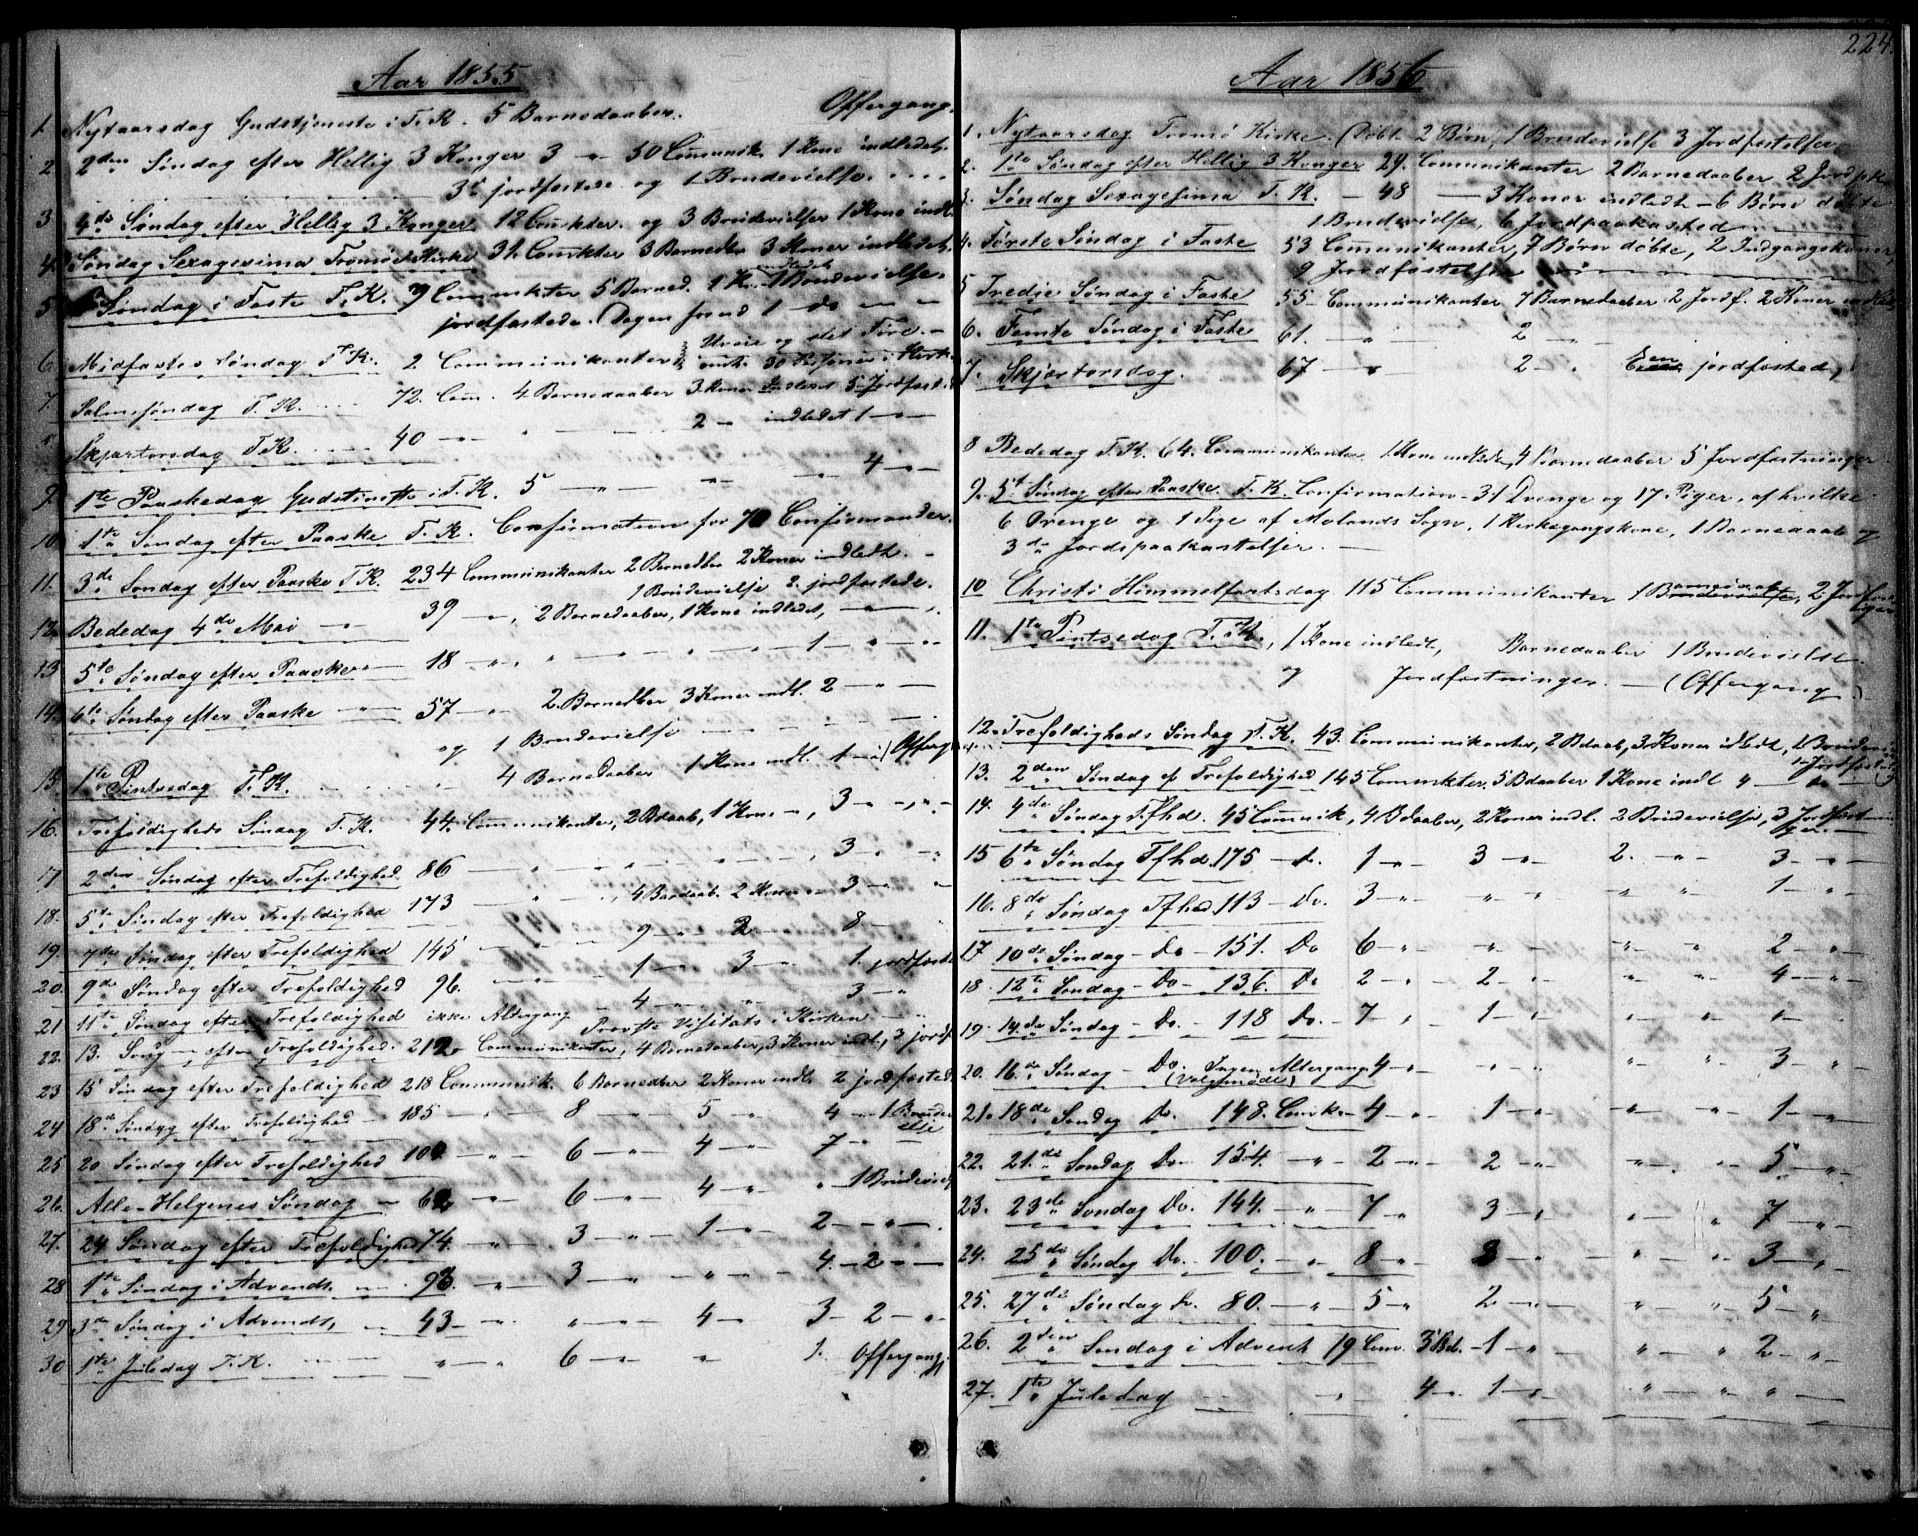 Aar 1855
Offergang.
1. Nytaarsdag Gudstjeneste i T. K. 5 Barnedaaber.
2. 2den Søndag efter Hellig 3 Konger 3 - " - 30 Comunik. 1 Kone indledet.
3 jordfæstede og 1 Brudevielse. . . . .
3. 4de Søndag efter Hellig 3 Konger 12 Comkter. og 3 Brudevielser 1 Kone indl
4. Søndag Sexagesima Tromsø Kirke 31 Comkter 3 Barnedbr 3 Koner indledet.
5. Søndag i Faste T. K. 9 Communkter 5 Barned. 1 K. indledet 1 Brudevielse.
jordfæstede. (Dagen forud 1 do — " —
6. Midfaste Søndag T. K. 2 Communikanter
Uveir og slet Føre. -
7. Palmesøndag T. K. . . . . 72. Com. 4 Barnedaaber 3 Koner indledet 5 Jordfæsted
8. Skjærtorsdag T. K. . . . . 40 — " — " — 2 - " indledet 1 — " —
9. 1te Paaskedag Gudstieneste i T. K. 5 — " — " — " 4 — " —
10. 1te Søndag efter Paaske T. K. Confirmation for 70 Confirmander.
11. 3de Søndag efter Paaske T. K. 234 Communikanter 2 Barnedbr 2 Koner indledt. -
1 Brudevielse 2 jordfæstede.
12. Bededag 4de Mai — " — 39 — ", 2 Barnedaaber, 1 Kone indledet, — " — ".
13 5te Søndag efter Paaske — " — 18 — " . " — " " " " 1 — " — " —
14. 6te Søndag efter Paaske — " — 57 — " . 2 Barnedber 3 Koner indl. 2 — " —
og 1 Brudevielse — " —
15. 1te Pintsedag T. K. . . . . 4 Barnedaaber 1 Kone indl. 1 — " (Offerg
16. Trefoldigheds Søndag T. K. 44. Communikanter, 2 Bdaab, 1 Kone — ", 3 — " —
17 2den Søndag efter Trefoldighed. 86 — " — " — " , 3 — " —
18. 5te Søndag efter Trefoldighed 173 — " — " , 4 Bardaab. 2 Koner — " 3 — " —
19. 7de Søndag efter Trefoldighed 145 — " — 9 — " 2 — " 8 — "
20. 9de Søndag efter Trefoldighed 96. — " — 1 — " 3 — " 1. jordfæste
21 11te Søndag efter Trefoldighed ikke Altergang 4 — " — " 3 — "
Provste Visitats i Kirken —
22. 13. Søndag efter Trefoldighed. 212 Communikanter, 4 Barnedaaber, 3 Koner indl., 3 jordf
23 15 Søndag efter Trefoldighed 218 Communik. 6 Barnedber 2 Koner indl. 2 jordfæsted.
24 18de Søndag efter Trefoldighed - 185 — " — 8 — " 5 — " 4 - 1 Brudevi
else
25 20 Søndag efter Trefoldighed 100 — " — 6 — " 4 — " 7 — " —
26. Alle-Helgenes Søndag — 62 — " 6 — " 4 — " " 1 Brudeviel
27. 24 Søndag efter Trefoldighed 74. — " 3 — " 1 — " 2 — " —
28 1te Søndag i Advendt. — 93. — " 3 — " " — " 4. - 2 — " —
29 3de Søndag i Advendt, — 43 — " — " " — " 4 — " 3 - 2 — " -
30 1te Juledag T. K. — " — " 6 — " " 1. Offergang.
224.
Aar 1856
1. Nytaarsdag Tromsø Kirke. Døbt 2 Børn, 1 Brudevielse 3 Jordfæstelser
2. 1te Søndag efter Hellig 3 Konger 29. Comunikanter 2 Barnedaaber 2 Jordpk
3. Søndag Sexagesima T. K. - 48 — 3 Koner indledt - 6 Børn døbte
1 Brudevielse, 6 Jordpaakasted
4. Første Søndag i Faste 53 Comunikanter, 7 Børn døbte, 2 Indgangskoner
9 Jordfæstelser
5 Tredie Søndag i Faste 55 Communikanter 7 Barnedaaber 2 Jordf. 2 Koner indled
6. Femte Søndag i Faste 61. — " 2 — "
7. Skjærtorsdag. 67 — " — 2 - " Een jordfæsted,
8 Bededag T. K. 64. Communikanter 1 Kone indledt, 4 Barnedaaber 5 Jordfæstninger
9. 5te Søndag efter Paaske T. K. Confirmation - 31 Drenge og 17 Piger, af hvilke
6 Drenge og 1 Pige af Malands Sogn, 1 Kirkegangskone, 1 Barnedaab og
3de Jordspaakastelser. —
10 Christi Himmelfartsdag 115 Communikanter 1 Barnedaab, 2 Jordfæst
11. 1te Pintsedag T. K., 1 Kone indledt, Barnedaaber 1 Brudevielse
og Jordfæstninger. — (Offergang)
12. Trefoldigheds Søndag T. K. 43. Communikanter, 2 Bdaab, 3 Koner indledt, 1 Brudevi
13. 2den Søndag ef Trefoldighed 145 Commkter. 5 Bdaaber 1 Kone indl " — do —
14. 4de Søndag Tfhd. 45 Comunik, 4 Bdaaber, 2 Koner indl. 2 Brudevielse, 3 Jordfæstn
15 6te Søndag Tfhd. 175 - do. 1 — " 3 — " 2. — " — 3 — " —
16. 8de Søndag Tfhd. 113 - Do. 3 — " " — " " — " 1 — " —
17 10de Søndag - Do - 151. Do 6 — " " — " " — " 2 — " —
18 12te Søndag - Do - 136. Do 2 — " 2 — " " — " 4 — " —
19. 14de Søndag - Do. - 118 Do. - 7 — " 1 — " " — " " — "
20. 16de Søndag - Do. Ingen Altergang 4 — " " — " " — " 3 — "
(Valgmøde)
21. 18de Søndag Do. 148. Comk. - 4 — " 1 — " " — " 1 — "
22. 21de Søndag Do. 154. — " - 2 — " 2 — " " — " 5 — "
23. 23de Søndag Do. 144. — " - 7 — " 3 — " " — " 7 — "
24. 25de Søndag Do. 100. — " - 8 — " 3 — " " — " 3 — "
25. 27de Søndag Do. 80. — " - 5 — " 2 — " " — " 5 — "
26. 2den Søndag i Advent 19 Com. 3 Bd. - 1 — " " — " 2 — "
27. 1te Juledag — " 4 — " 1 — " " — " " — "